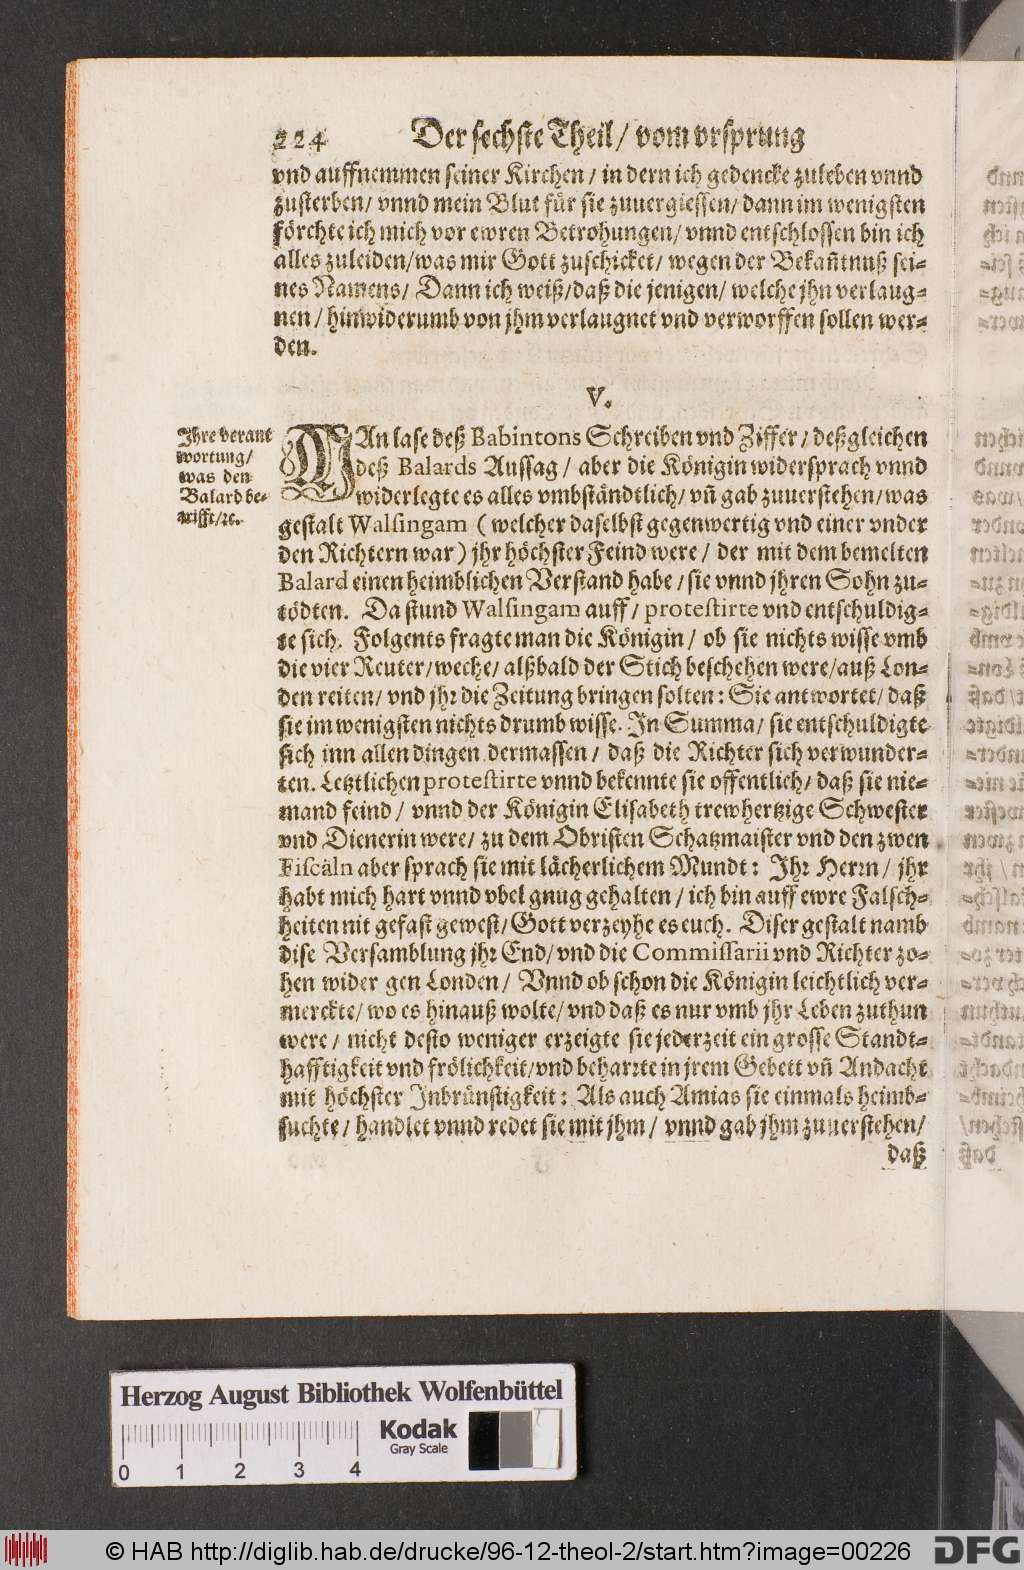 224 Der sechste Theil / vom vrsprung
vnd auffnemmen seiner Kirchen / in dern ich gedencke zuleben vnnd
zusterben / vnnd mein Blut für sie zuuergiessen / dann im wenigsten
förchte ich mich vor ewren Betrohungen / vnnd entschlossen bin ich
alles zuleiden / was mir Gott zuschicket / wegen der Bekañtnuß sei-
nes Namens / Dann ich weiß / daß die jenigen / welche jhn verlaug-
nen / hinwiderumb von jhm verlaugnet vnd verworffen sollen wer-
den.
V.
Jhre verant
wortung /
was den
Balard be-
trifft / ꝛc.
MAn lase deß Babintons Schreiben vnd Ziffer / deßgleichen
deß Balards Aussag / aber die Königin widersprach vnnd
widerlegte es alles vmbständtlich / vñ gab zuuerstehen / was
gestalt Walsingam ( welcher daselbst gegenwertig vnd einer vnder
den Richtern war ) jhr höchster Feind were / der mit dem bemelten
Balard einen heimblichen Verstand habe / sie vnnd jhren Sohn zu-
tödten. Da stund Walsingam auff / protestirte vnd entschuldig-
te sich. Folgents fragte man die Königin / ob sie nichts wisse vmb
die vier Reuter / weche / alßbald der Stich beschehen were / auß Lon-
den reiten / vnd jhr die Zeitung bringen solten : Sie antwortet / daß
sie im wenigsten nichts drumb wisse. Jn Summa / sie entschuldigte
sich inn allen dingen dermassen / daß die Richter sich verwunder-
ten. Letztlichen protestirte vnnd bekennte sie offentlich / daß sie nie-
mand feind / vnnd der Königin Elisabeth trewhertzige Schwester
vnd Dienerin were / zu dem Obristen Schatzmaister vnd den zwen
Fiscäln aber sprach sie mit lächerlichem Mundt : Jhr Herrn / jhr
habt mich hart vnnd vbel gnug gehalten / ich bin auff ewre Falsch-
heiten nit gefast gewest / Gott verzeyhe es euch. Diser gestalt namb
dise Versamblung jhr End / vnd die Commissarii vnd Richter zo-
hen wider gen Londen / Vnnd ob schon die Königin leichtlich ver-
merckte / wo es hinauß wolte / vnd daß es nur vmb jhr Leben zuthun
were / nicht desto weniger erzeigte sie jederzeit ein grosse Standt-
hafftigkeit vnd frölichkeit / vnd beharzte in jrem Gebett vñ Andacht
mit höchster Jnbrünstigkeit : Als auch Amias sie einmals heimb-
suchte / handlet vnnd redet sie mit jhm / vnnd gab jhm zuuerstehen /
daß
Herzog August Bibliothek Wolfenbüttel
Kodak
Gray Scale
0 1 2 3 4
© HAB http://diglib.hab.de/drucke/96-12-theol-2/start.htm?image=00226
DFG